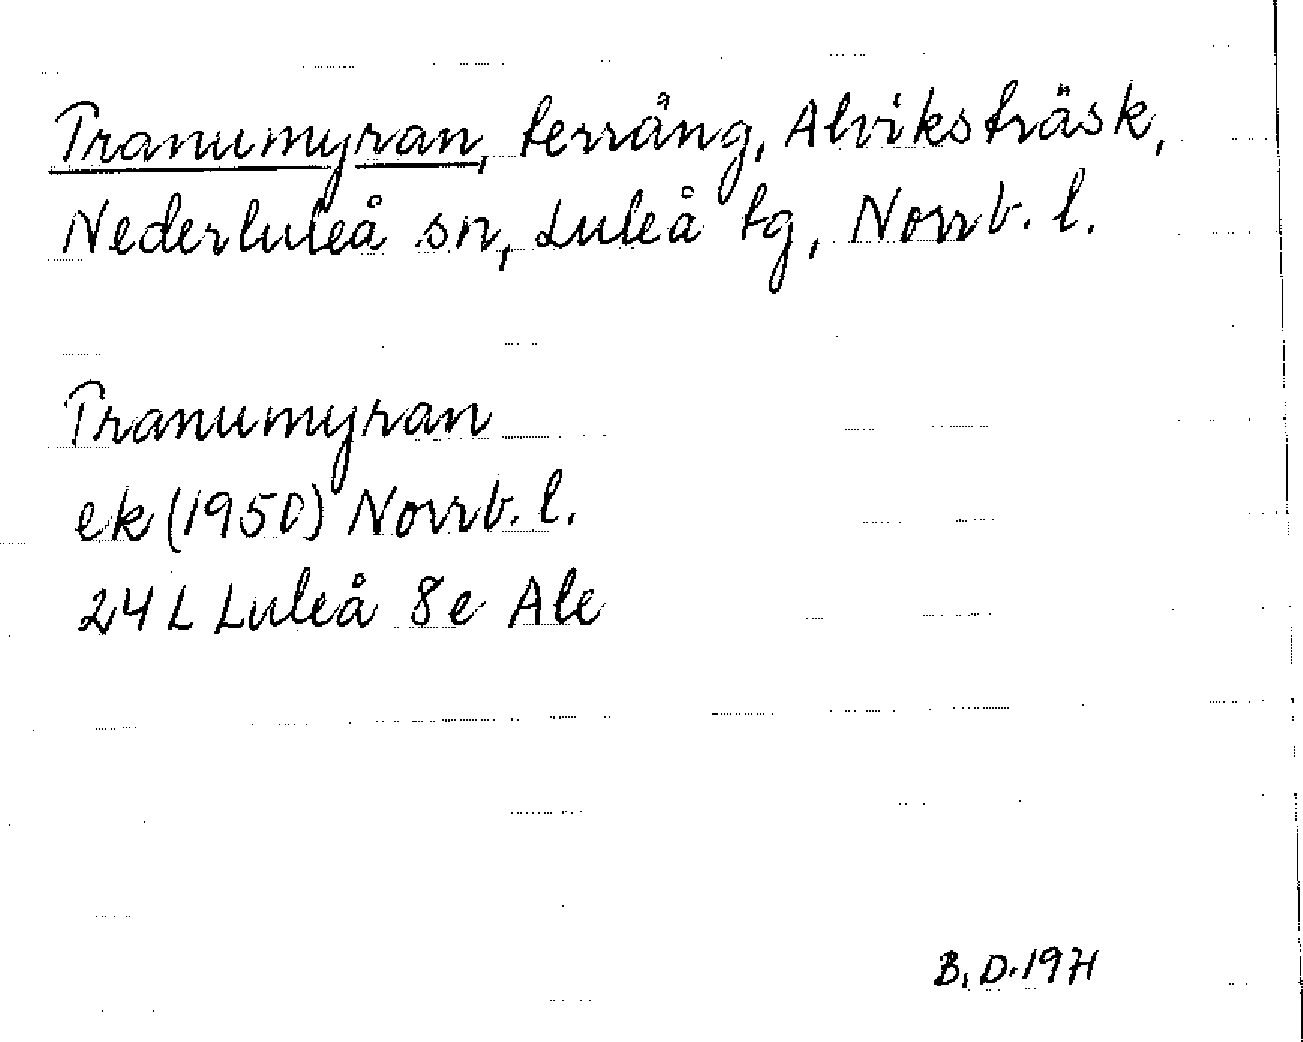 Tranumyran, terräng, Alviksträsk,
Nederluleå sn, Luleå tg, Norrb. l.
Tranumyran
ek (1950) Norrb. l.
24 L Luleå 8e Ale
B. D. 1971